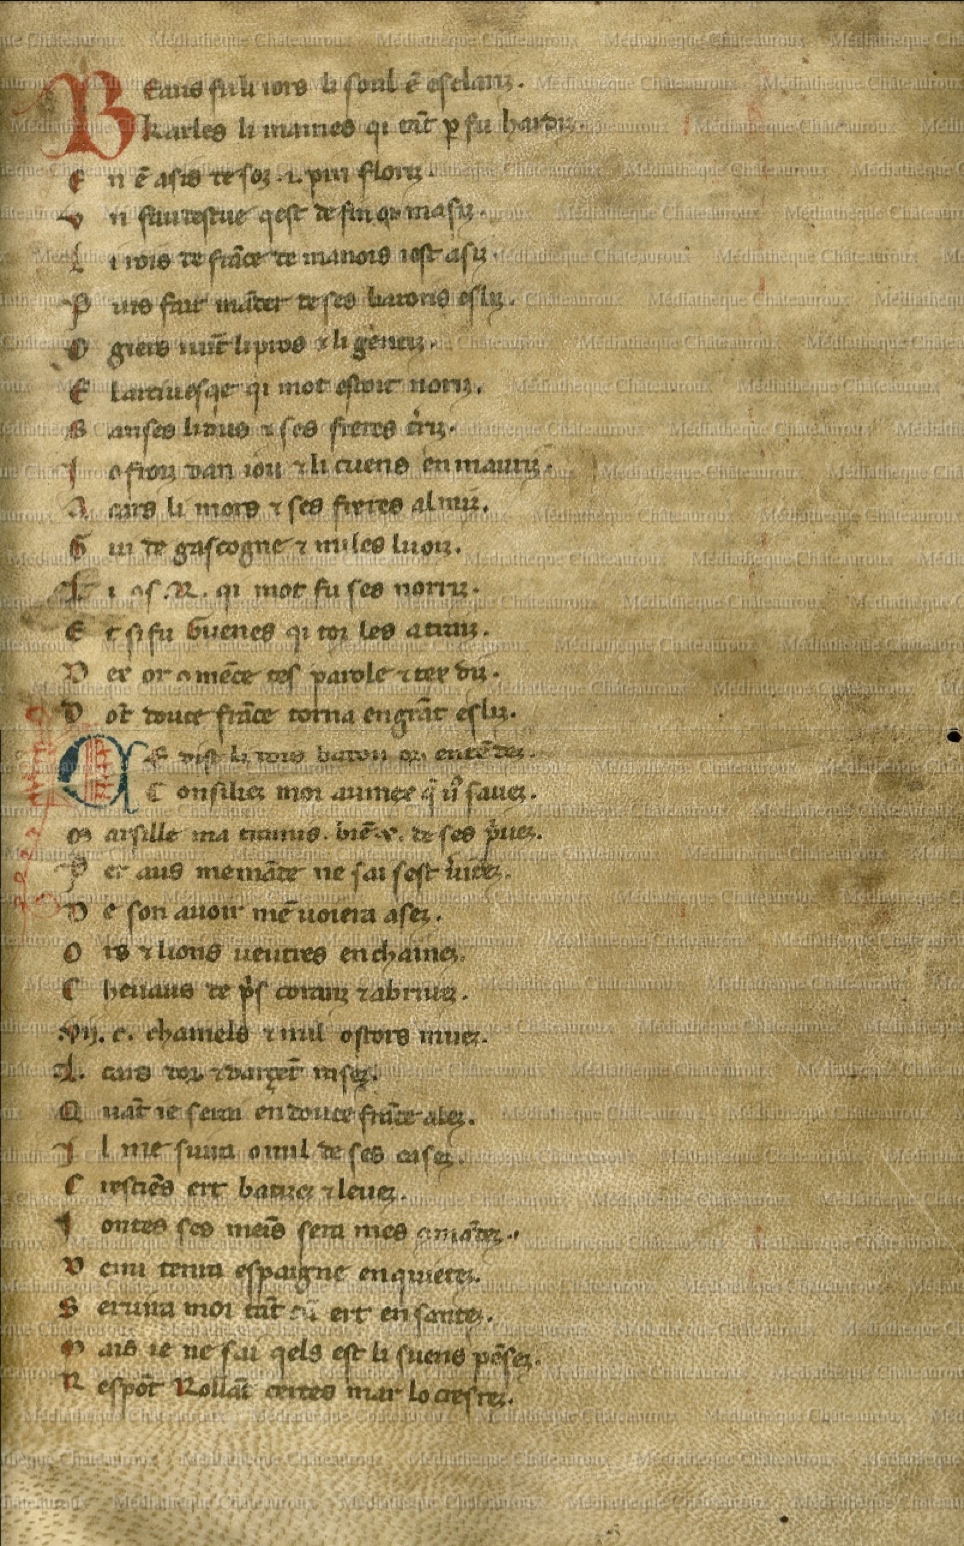 Beaus fu li iors li soul ē esclariz.
karles li maines qi tāt p fu hardiz.
E n ē asis desoz .i. pin floriz.
V n faudestue qest de fin or masiz.
L i rois de frāce de manois iest asiz.
P uis fait māder de ses barons esliz.
O giers uint li pros ⁊ li gentiz.
E l arciuesqe qi mot estoit noriz.
S anses li dus ⁊ ses freres tiriz.
I ofroiz dan iou ⁊ li cuens en mauriz.
A cars li mors ⁊ ses freres almiz.
G ui de gascogne ⁊ miles luoiz.
L i qs .R. qi mot fu ses noriz.
E t si fu Guenes qi toz les a traiz.
D ex or comēce tes parole ⁊ tex diz.
D ōt douce frāce torna en grāt esliz.
CE dist li rois baron or entēdez.
C onsiliez moi aumee q̄ uos sauez.
M arsille ma tramis. biē .x. de ses priuez.
P er aus me māde ne sai sest uitez.
D e son auoir mē uoiera asez.
O rs ⁊ lions ueutres enchainez.
C heuaus de ps coranz ⁊ abriuez.
.vij. c. chamels ⁊ mil ostors muez.
.L. cars dor ⁊ dargēt rasez.
Q uāt ie serai en douce frāce alez.
I l me siura o mil de ses casez.
C restiēs ert batiez ⁊ leuez.
I ontes ses meīs sera mes comādez.
D emi tenra espaigne en quitez.
S eruira moi tāt cū ert en santez.
M ais ie ne sai qels est li suens pēsez.
R espōt Rollāt certes mar lo crestez.